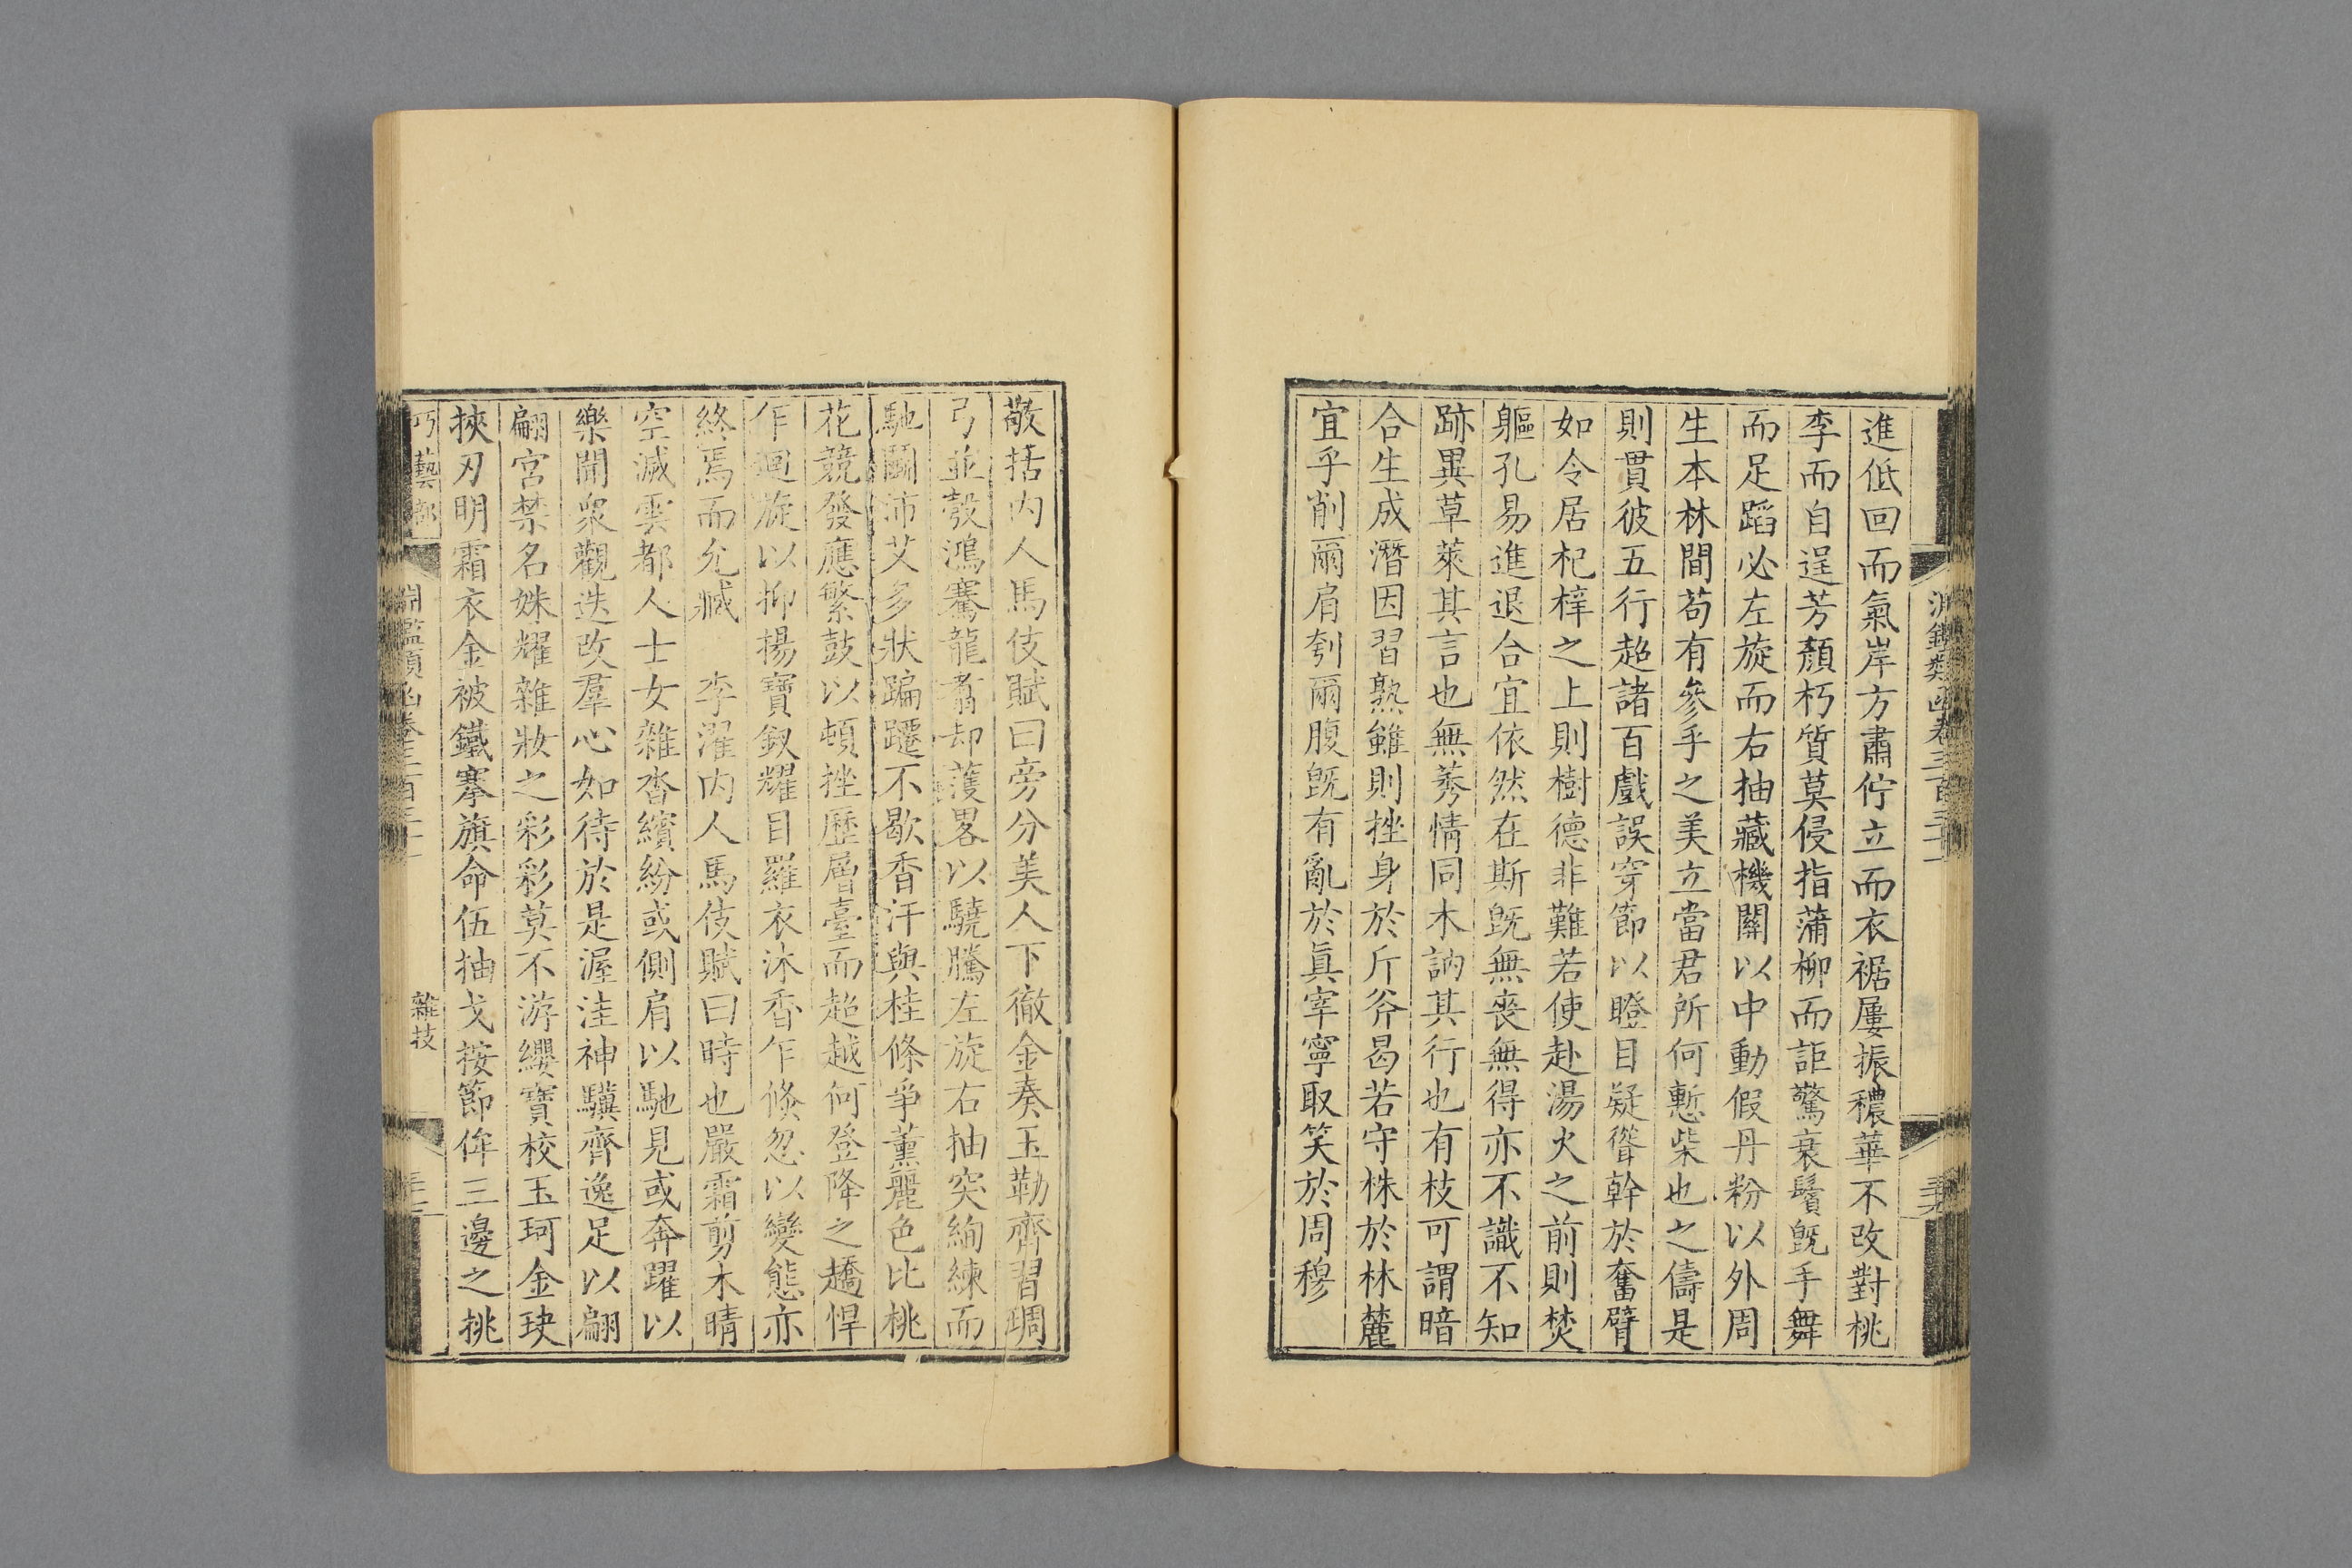 淵鑑類函卷三百三十一
進低回而氣岸方肅佇立而衣裾屢振穠華不改對桃
李而自逞芳顏朽質莫侵指蒲柳而詎驚衰鬢旣手舞
而足蹈必左旋而右抽藏機關以中動假丹粉以外周
生本林間苟有參乎之美立當君所何慙柴也之儔是
則貫彼五行超諸百戲誤穿節以瞪目疑聳幹於奮臂
如令居杞梓之上則樹德非難若使赴湯火之前則焚
軀孔易進退合宜依然在斯旣無喪無得亦不識不知
跡異草萊其言也無莠情同木訥其行也有枝可謂暗
合生成潛因習熟雖則挫身於斤斧曷若守株於林麓
宜乎削爾肩刳爾腹旣有亂於眞宰寧取笑於周穆
敬括内人馬伎賦曰旁分美人下徹金奏玉勒齊習琱
弓並彀鴻騫龍翥却蒦畧以驍騰左旋右抽突絢練而
馳鬭沛艾多狀蹁躚不歇香汗與桂條爭薰麗色比桃
花競發應繁鼓以頓挫歷層臺而超越何登降之趫悍
乍迴旋以抑揚寶釵耀目羅衣沐香乍倏忽以變態亦
終焉而允臧 李濯内人馬伎賦曰時也嚴霜剪木晴
空滅雲都人士女雜沓繽紛或側肩以馳見或奔躍以
樂聞衆觀迭改羣心如待於是渥洼神驥齊逸足以翩
翩宮禁名姝耀雜妝之彩彩莫不游纓寶校玉珂金玦
挾刃明霜衣金被鐵搴旗命伍抽戈按節侔三邊之桃
巧藝部 淵鑑類函卷三百三十一 雜技